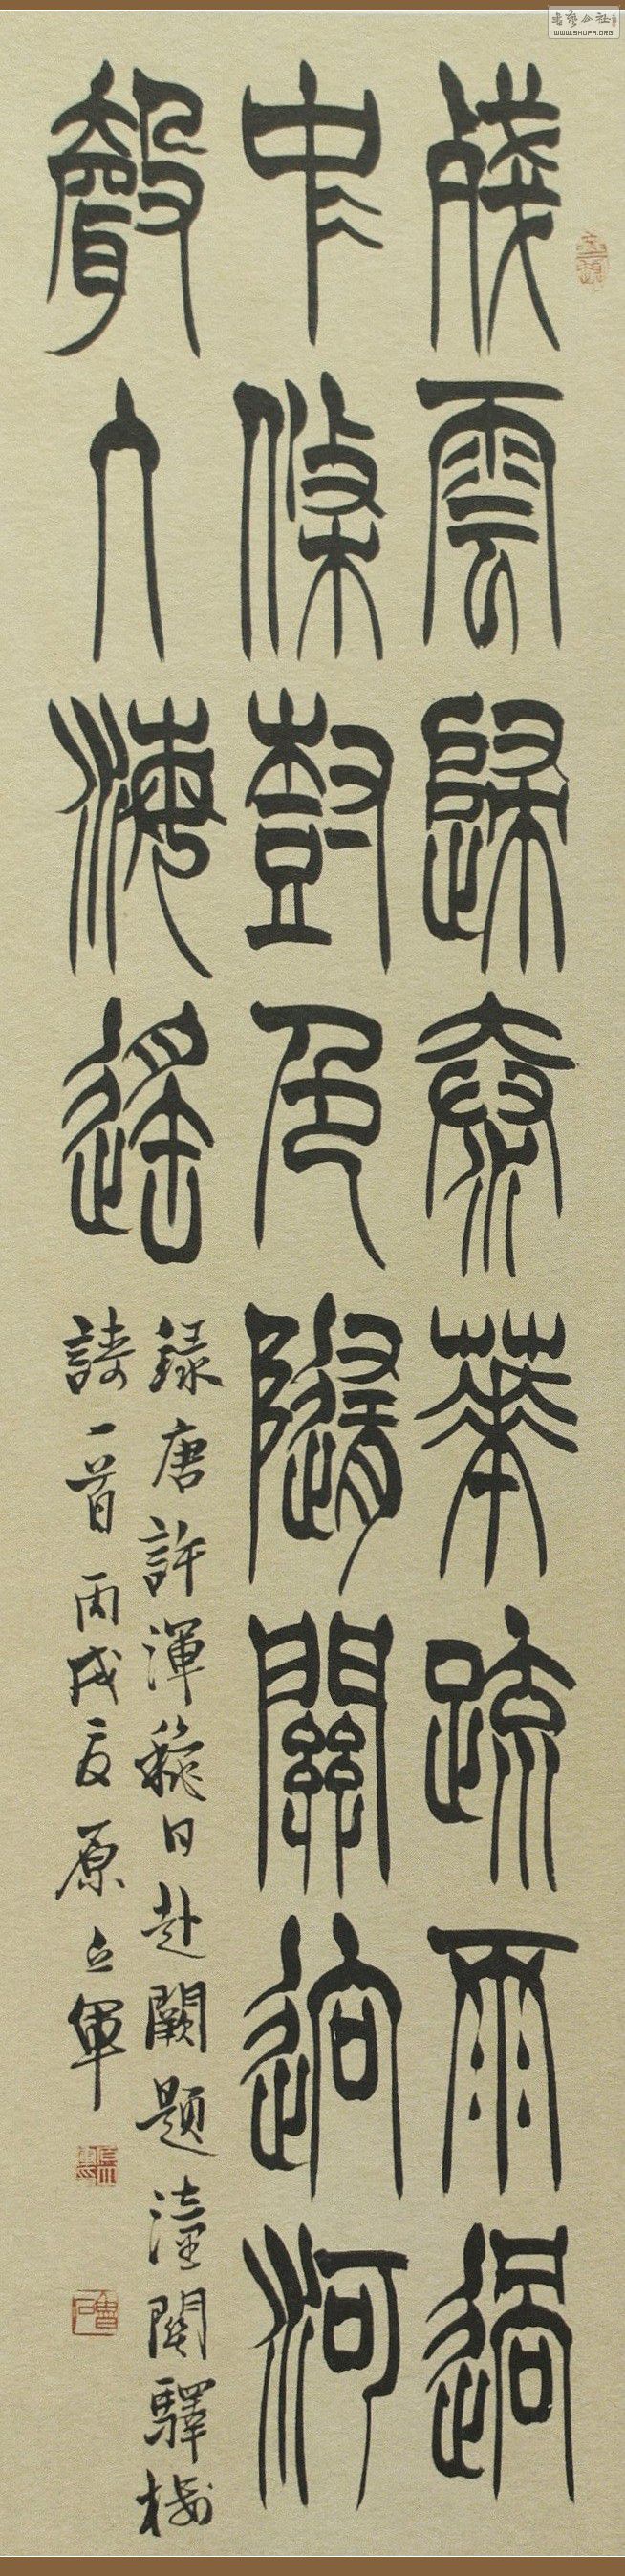 殘雲歸泰華疏雨過
中條樹色隨關迥河
聲入海遙
録唐許渾秋日赴闕題潼関驛楼
詩一首丙戌夏原立軍
書藝公社
WWW.SHUFA.ORG